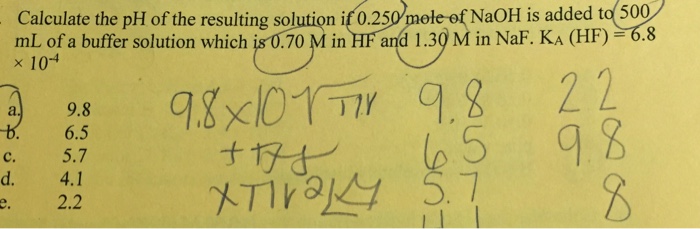 Calculate the pH of the resulting solution if 0.250 mole of NaOH is added to 500
mL of a buffer solution which is 0.70 M in HF and 1.30 M in NaF. KA (HF) = 6.8
× 10-4
a. 9.8
b. 6.5
c. 5.7
d. 4.1
e. 2.2
9.8×10
9.8
6.5
5.7
22
9.8
8